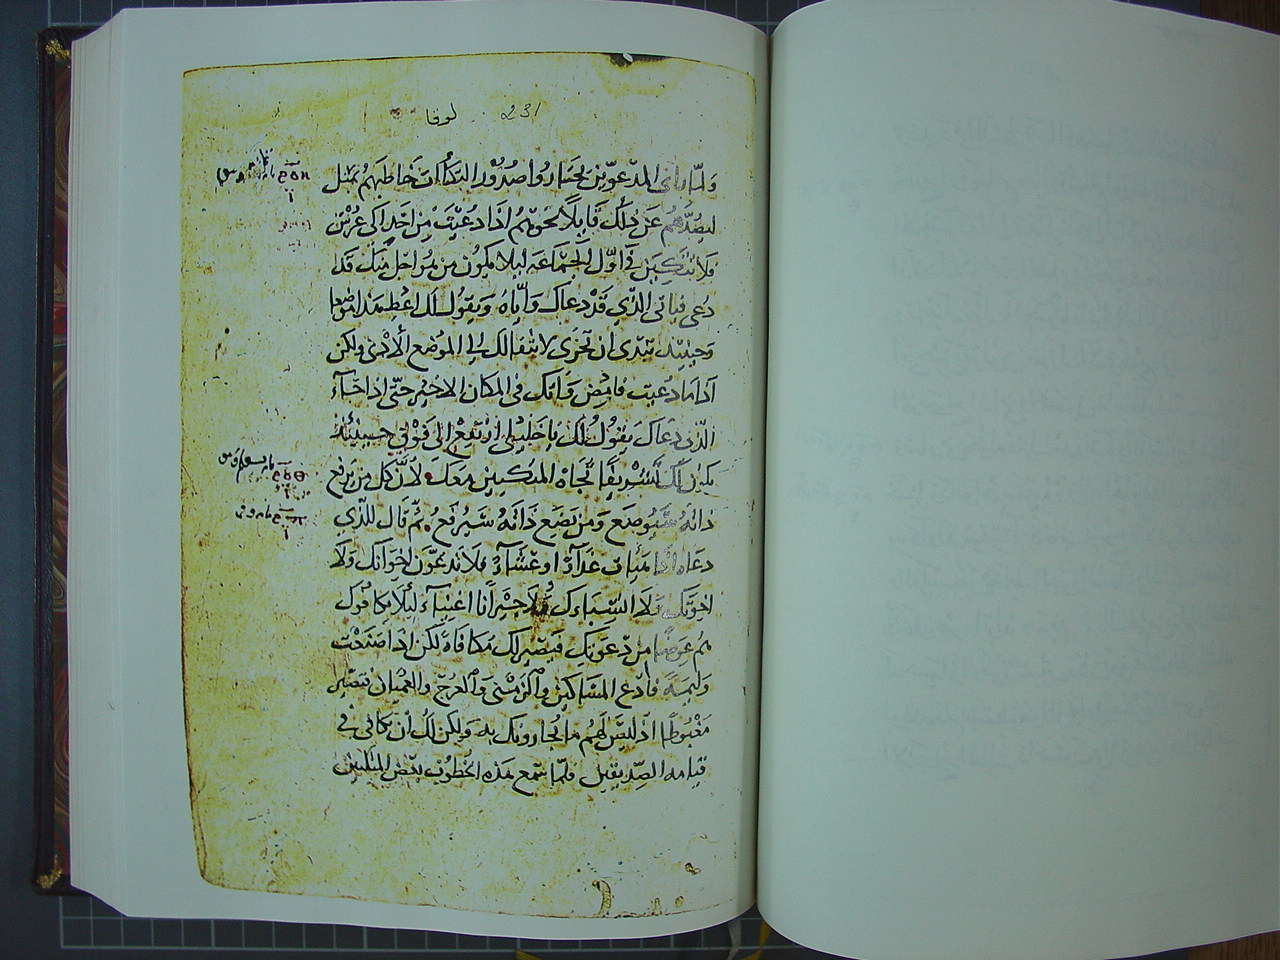 لوقا 231
ولما رأى المدعوين يختاروا صدور التكآت خاطبهم بمثل
ليصدهم عن ذلك قايلا نحوهم اذا دعيت من احد الى عرس
فلا تتكين في اول الجماعه ليلا يكون من هو اجل منك قد
دعى فياتى الذي قد دعاك واياه ويقول لك اعط هذا موضعا
وحينيذ تبتدى ان تخزى لانتقالك الى الموضع الأدنى ولكن
اذا ما دعيت فامض واتك في المكان الاخير حتى اذا جاء
الذى دعاك يقول لك يا خليلي ارتفع الى فوق حينيذ
يكون لك تشريفا تجاه المتكيين معك لأن كل من يرفع
ذاته سيوضع ومن يضع ذاته سيرفع ثم قال للذي
دعاه اذا غداء او عشاء فلا تدعون اخوانك ولا
اخوتك ولا انسباءك ولا جيرانا اغنياء ليلا يكافوك
هم عوضا من دعوتك فيصير لك مكافاة لكن اذا صنعت
وليمة فادع المساكين والزمنى والعرج والعميان فتصير
مغبوطا اذ ليس لهم ما يجازونك به ولكن لك أن تكافى في
قيامه الصديقين فلما سمع هذه الخطوب بعض المتكيين